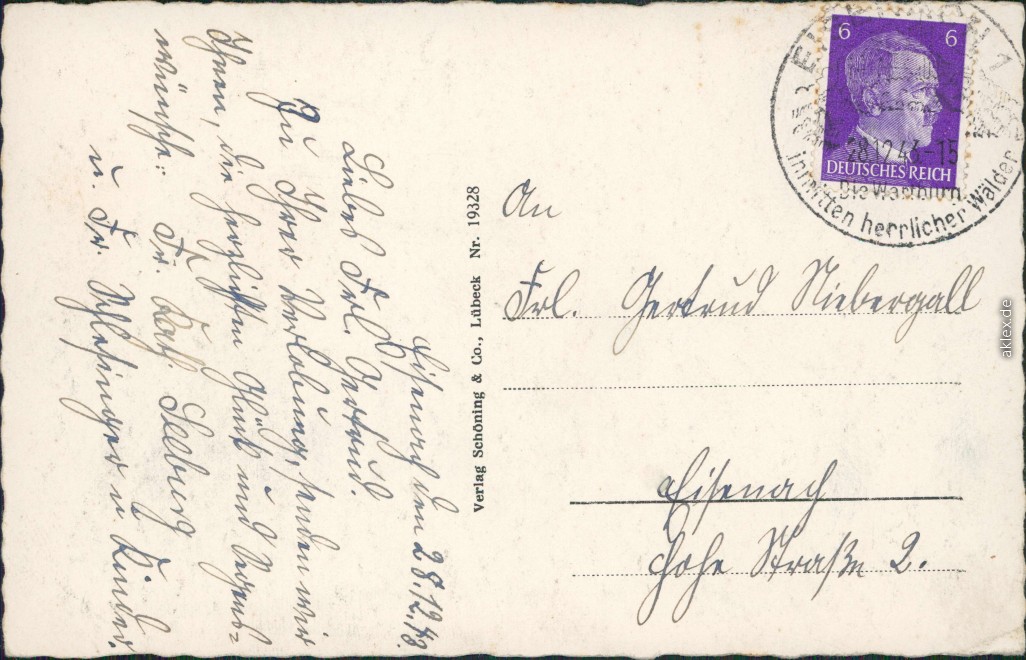 Eisenach den 28.12.43.
Liebes Frl. Gertrud.
Zu Ihrer Verlobung, senden wir
Ihnen, die herzlichsten Glück und Segens=
wünsche. Fr. Kath. Seeburg
u. Fr. Schlesinger u Kinder.
Verlag Schöning & Co., Lübeck Nr. 19328
6 6
DEUTSCHES REICH
28.12.43.-15
Die Wartburg
inmitten herrlicher Wälder
An
Frl. Gertrud Niebergall
Eisenach
Hohe Straße 2.
aklex.de